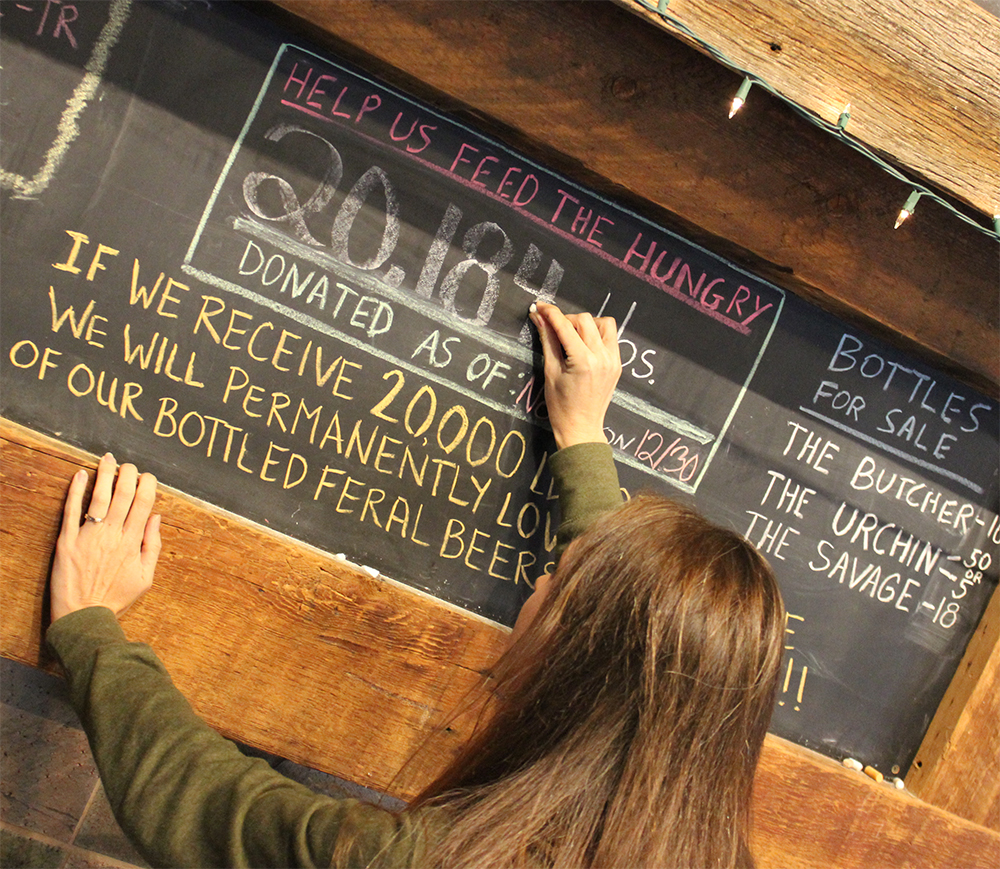 -TR
HELP US FEED THE HUNGRY
20,184 lbs.
DONATED AS OF: ON 12/30
IF WE RECEIVE 20,000
WE WILL PERMANENTLY
OF OUR BOTTLED FERAL BEERS
BOTTLES
FOR SALE
THE BUTCHER-
THE URCHIN-50
OR
5
THE SAVAGE-18
!!